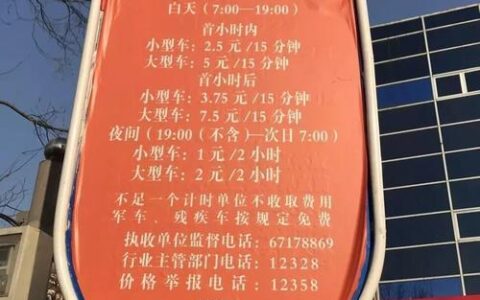 白天（7:00—19:00）
首小时内
小型车：2.5 元 /15 分钟
大型车：5 元 /15 分钟
首小时后
小型车：3.75 元 /15 分钟
大型车：7.5 元 /15 分钟
夜间（19:00（不含）—次日 7:00）
小型车：1 元 /2 小时
大型车：2 元 /2 小时
不足一个计时单位不收取费用
军车、残疾车按规定免费
执收单位监督电话：67178869
行业主管部门电话：12328
价格举报电话：12358